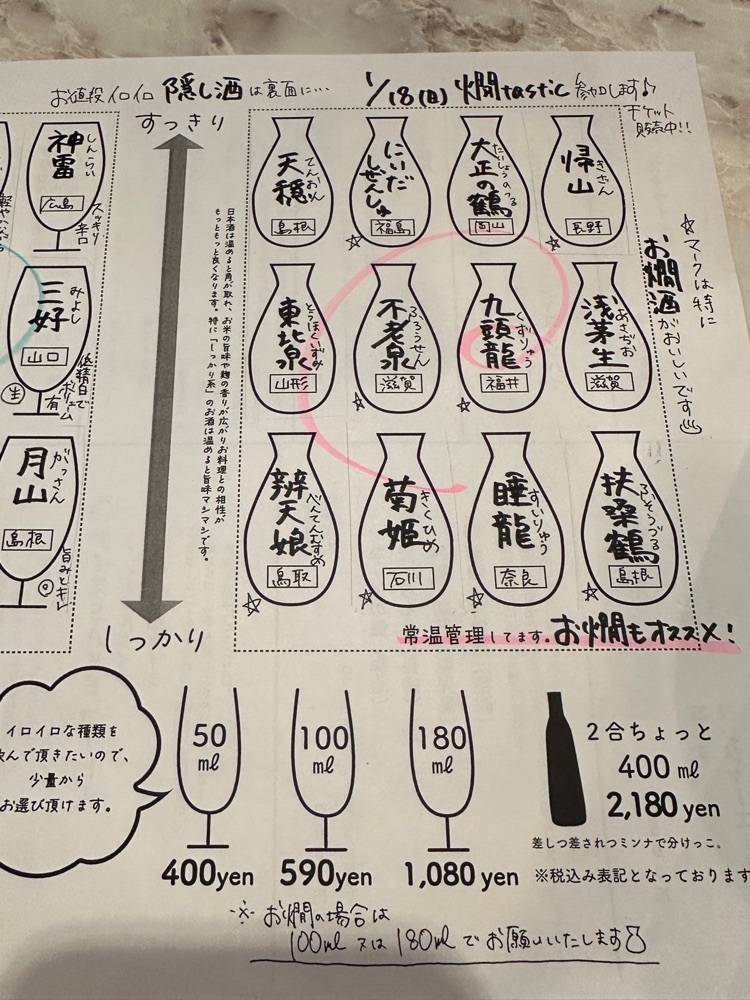 お値段イロイロ 隠し酒は裏面に…
1/18(日) 燗tastic 参加します♪
チケット
販売中!!
すっきり
神雷
しんらい
広島
スッキリ
辛口
三好
みよし
山口
低精白で
ボリューム
有
生
月山
がっさん
島根
旨みとキレ
日本酒は温めると角が取れ、お米の旨味や麹の香りが広がりお料理との相性が
もっともっと良くなります。特に「しっかり系」のお酒は温めると旨味マシマシです。
しっかり
天穏
てんおん
島根
にいだ
しぜんしゅ
福島
☆
大正の鶴
たいしょうのつる
岡山
帰山
きざん
長野
☆
東北泉
とうほくいずみ
山形
不老泉
ふろうせん
滋賀
☆
九頭龍
くずりゅう
福井
☆
浅茅生
あさぢお
滋賀
辨天娘
べんてんむすめ
鳥取
☆
菊姫
きくひめ
石川
☆
睡龍
すいりゅう
奈良
☆
扶桑鶴
ふそうづる
島根
☆
☆マークは特に
お燗酒がおいしいです
常温管理してます。お燗もオススメ!
イロイロな種類を
んで頂きたいので、
少量から
お選び頂けます。
50
ml
400yen
100
ml
590yen
180
ml
1,080yen
2合ちょっと
400ml
2,180yen
差しつ差されつミンナで分けっこ。
※税込み表記となっております
※お燗の場合は
100ml又は180mlでお願いいたします